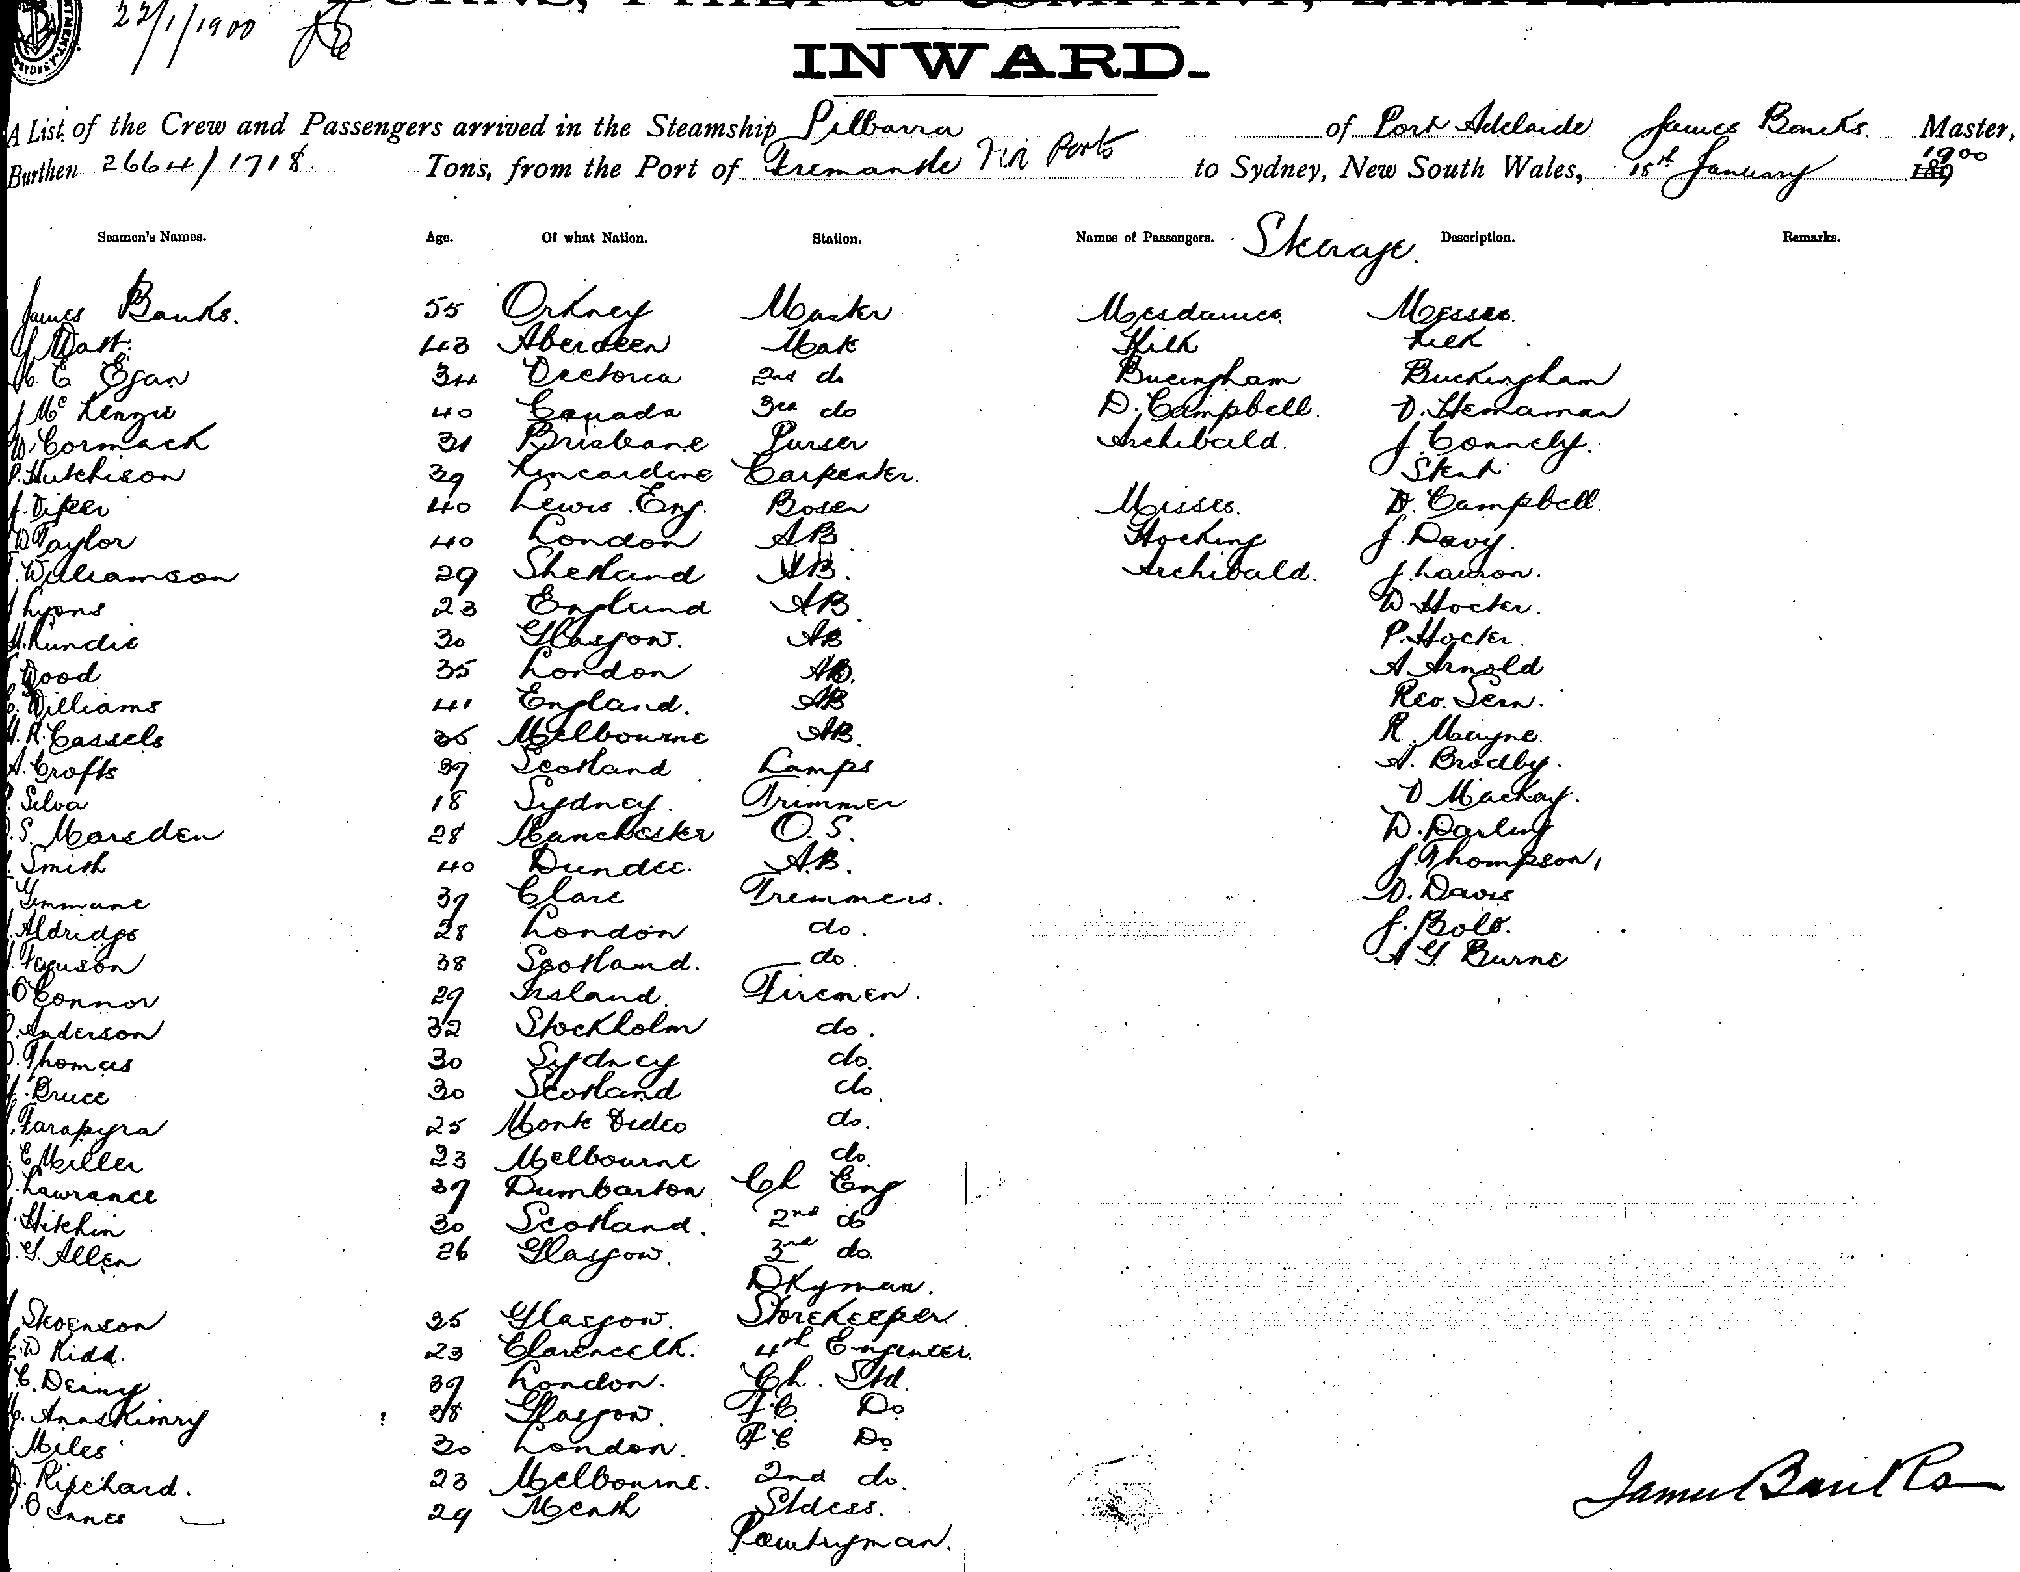 22/1/1900
BURNS, PHILP & COMPANY, LIMITED.
INWARD.
A List of the Crew and Passengers arrived in the Steamship Pilbarra of Port Adelaide James Banks. Master,
Burthen 2664/1718. Tons, from the Port of Fremantle via Ports to Sydney, New South Wales, 18th January 1900
Seamen's Names. Age. Of what Nation. Station. Names of Passengers. Steerage. Description. Remarks.
James Banks. 55 Orkney Master Mesdames Messrs.
J Watt. 43 Aberdeen Mate
Egan 34 Victoria 2nd do Bucingham Buckingham
J McKenzie 40 Canada 3rd do D. Campbell. Hernaman
W. Cormack 31 Brisbane Purser Archibald. J. Connely.
Hutchison 39 Kincardine Carpenter. Stent
J. Piper 40 Lewis Eng. Bosen Misses. D. Campbell
Taylor 40 London AB. Hocking J. Davy.
Williamson 29 Shetland AB. Archibald. J. Lawson.
Lyons 23 England AB. Hocter.
Kundie 30 Glasgow. AB P. Hocter.
Wood 35 London AB. A Arnold
Williams 41 England. AB Rev. Sern.
R. Cassels 35 Melbourne AB. R. Mayne.
A. Crofts 39 Scotland Lamps A. Brodby.
Silva 18 Sydney. Trimmer D Mackay.
S. Marsden 28 Manchester O.S. D. Darling
Smith 40 Dundee. A.B. J. Thompson,
39 Clare Trimmers. D. Davis
Aldridge 28 London do. J. Bolt.
Ferguson 38 Scotland. do. A G Burne
O'Connor 29 Ireland. Firemen.
Anderson 32 Stockholm do.
Thomas 30 Sydney do.
Bruce 30 Scotland do.
Tarapyra 25 Monte Video do.
E Miller 23 Melbourne do.
Lawrance 39 Dumbarton Ch Eng
Hitchin 30 Scotland. 2nd do
G. Allen 26 Glasgow. 3rd do.
Dkyman.
Stevenson 25 Glasgow. Storekeeper.
W Kidd. 23 4th Enginter.
C. Denny 39 London. Ch. Std.
28 Glasgow. F.C. Do
Miles 30 London. F C Do
Ripchard. 23 Melbourne. 2nd do.
29 Meath Stdess.
Pantryman.
James Banks